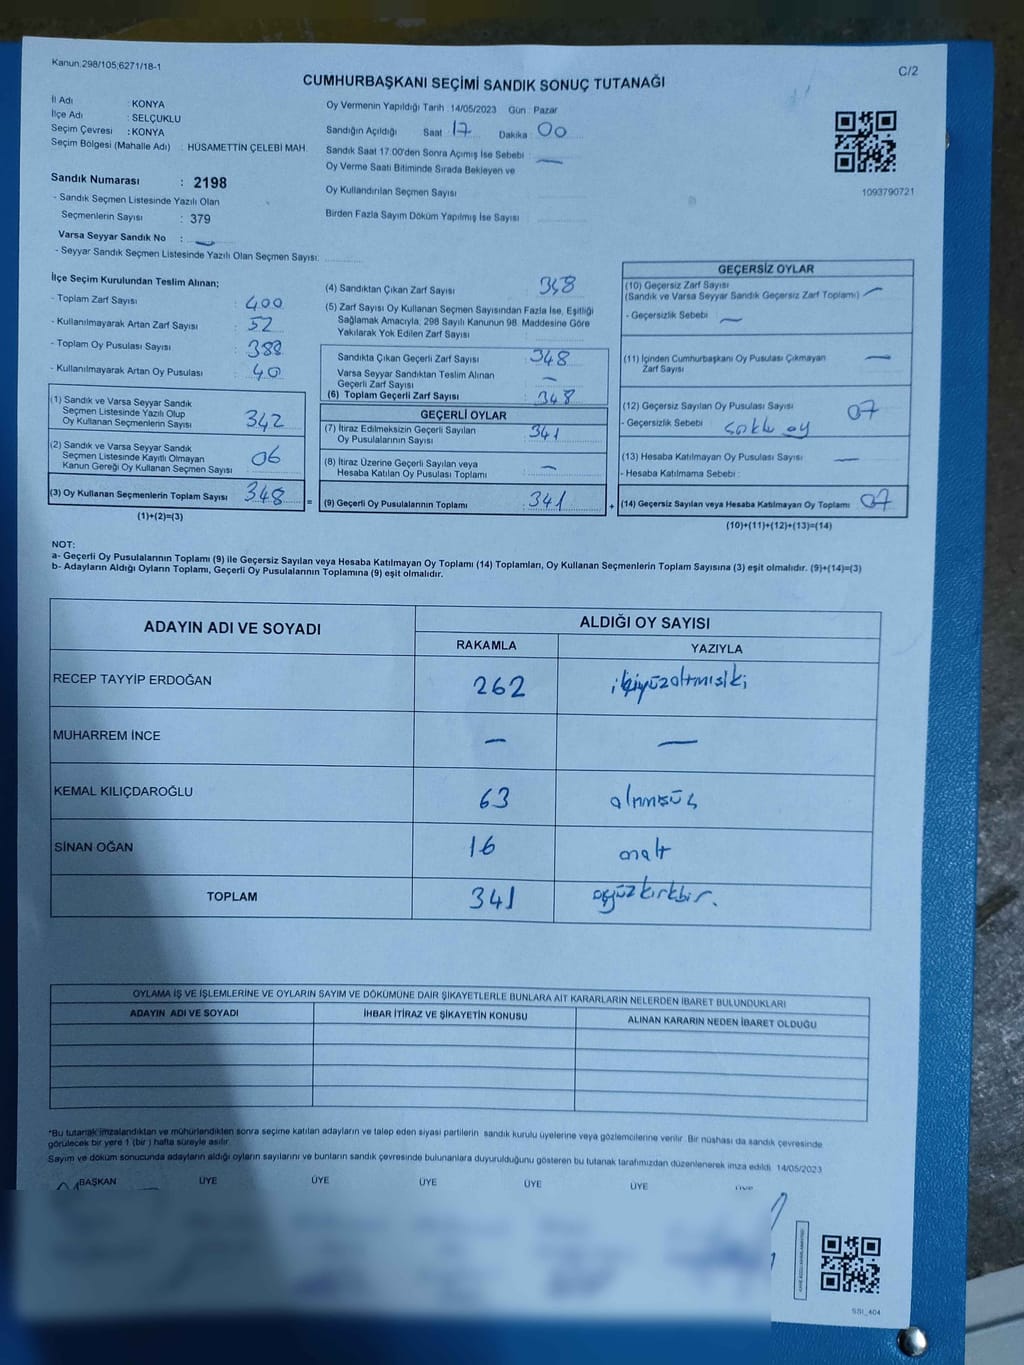 Kanun.298/105,6271/18-1
C/2
CUMHURBAŞKANI SEÇİMİ SANDIK SONUÇ TUTANAĞI
İl Adı : KONYA
İlçe Adı : SELÇUKLU
Seçim Çevresi : KONYA
Seçim Bölgesi (Mahalle Adı) : HÜSAMETTİN ÇELEBİ MAH.
Sandık Numarası : 2198
- Sandık Seçmen Listesinde Yazılı Olan
Seçmenlerin Sayısı : 379
Varsa Seyyar Sandık No : —
- Seyyar Sandık Seçmen Listesinde Yazılı Olan Seçmen Sayısı:
Oy Vermenin Yapıldığı Tarih : 14/05/2023 Gün : Pazar
Sandığın Açıldığı Saat 17 Dakika : 00
Sandık Saat 17:00'den Sonra Açımış İse Sebebi : —
Oy Verme Saati Bitiminde Sırada Bekleyen ve
Oy Kullandırılan Seçmen Sayısı
Birden Fazla Sayım Döküm Yapılmış İse Sayısı
1093790721
İlçe Seçim Kurulundan Teslim Alınan;
- Toplam Zarf Sayısı : 400
- Kullanılmayarak Artan Zarf Sayısı : 52
- Toplam Oy Pusulası Sayısı : 388
- Kullanılmayarak Artan Oy Pusulası : 40
(1) Sandık ve Varsa Seyyar Sandık
Seçmen Listesinde Yazılı Olup
Oy Kullanan Seçmenlerin Sayısı 342
(2) Sandık ve Varsa Seyyar Sandık
Seçmen Listesinde Kayıtlı Olmayan
Kanun Gereği Oy Kullanan Seçmen Sayısı 06
(3) Oy Kullanan Seçmenlerin Toplam Sayısı 348 =
(1)+(2)=(3)
(4) Sandıktan Çıkan Zarf Sayısı 348
(5) Zarf Sayısı Oy Kullanan Seçmen Sayısından Fazla İse, Eşitliği
Sağlamak Amacıyla, 298 Sayılı Kanunun 98. Maddesine Göre
Yakılarak Yok Edilen Zarf Sayısı :
Sandıkta Çıkan Geçerli Zarf Sayısı : 348
Varsa Seyyar Sandıktan Teslim Alınan
Geçerli Zarf Sayısı : —
(6) Toplam Geçerli Zarf Sayısı : 348
GEÇERLİ OYLAR
(7) İtiraz Edilmeksizin Geçerli Sayılan
Oy Pusulalarının Sayısı : 341
(8) İtiraz Üzerine Geçerli Sayılan veya
Hesaba Katılan Oy Pusulası Toplamı : —
(9) Geçerli Oy Pusulalarının Toplamı : 341 +
GEÇERSİZ OYLAR
(10) Geçersiz Zarf Sayısı
(Sandık ve Varsa Seyyar Sandık Geçersiz Zarf Toplamı) —
- Geçersizlik Sebebi : —
(11) İçinden Cumhurbaşkanı Oy Pusulası Çıkmayan
Zarf Sayısı : —
(12) Geçersiz Sayılan Oy Pusulası Sayısı : 07
- Geçersizlik Sebebi oy
(13) Hesaba Katılmayan Oy Pusulası Sayısı : —
- Hesaba Katılmama Sebebi :
(14) Geçersiz Sayılan veya Hesaba Katılmayan Oy Toplamı : 07
(10)+(11)+(12)+(13)=(14)
NOT:
a- Geçerli Oy Pusulalarının Toplamı (9) ile Geçersiz Sayılan veya Hesaba Katılmayan Oy Toplamı (14) Toplamları, Oy Kullanan Seçmenlerin Toplam Sayısına (3) eşit olmalıdır. (9)+(14)=(3)
b- Adayların Aldığı Oyların Toplamı, Geçerli Oy Pusulalarının Toplamına (9) eşit olmalıdır.
ADAYIN ADI VE SOYADI
ALDIĞI OY SAYISI
RAKAMLA YAZIYLA
RECEP TAYYİP ERDOĞAN 262 ikiyüzaltmışiki
MUHARREM İNCE — —
KEMAL KILIÇDAROĞLU 63 altmışüç
SİNAN OĞAN 16 onaltı
TOPLAM 341 üçyüzkırkbir.
OYLAMA İŞ VE İŞLEMLERİNE VE OYLARIN SAYIM VE DÖKÜMÜNE DAİR ŞİKAYETLERLE BUNLARA AİT KARARLARIN NELERDEN İBARET BULUNDUKLARI
ADAYIN ADI VE SOYADI İHBAR İTİRAZ VE ŞİKAYETİN KONUSU ALINAN KARARIN NEDEN İBARET OLDUĞU
*Bu tutanak imzalandıktan ve mühürlendikten sonra seçime katılan adayların ve talep eden siyasi partilerin sandık kurulu üyelerine veya gözlemcilerine verilir. Bir nüshası da sandık çevresinde
görülecek bir yere 1 (bir ) hafta süreyle asılır.
Sayım ve döküm sonucunda adayların aldığı oyların sayılarını ve bunların sandık çevresinde bulunanlara duyurulduğunu gösteren bu tutanak tarafımızdan düzenlenerek imza edildi. 14/05/2023
BAŞKAN ÜYE ÜYE ÜYE ÜYE ÜYE ÜYE
SSI_404